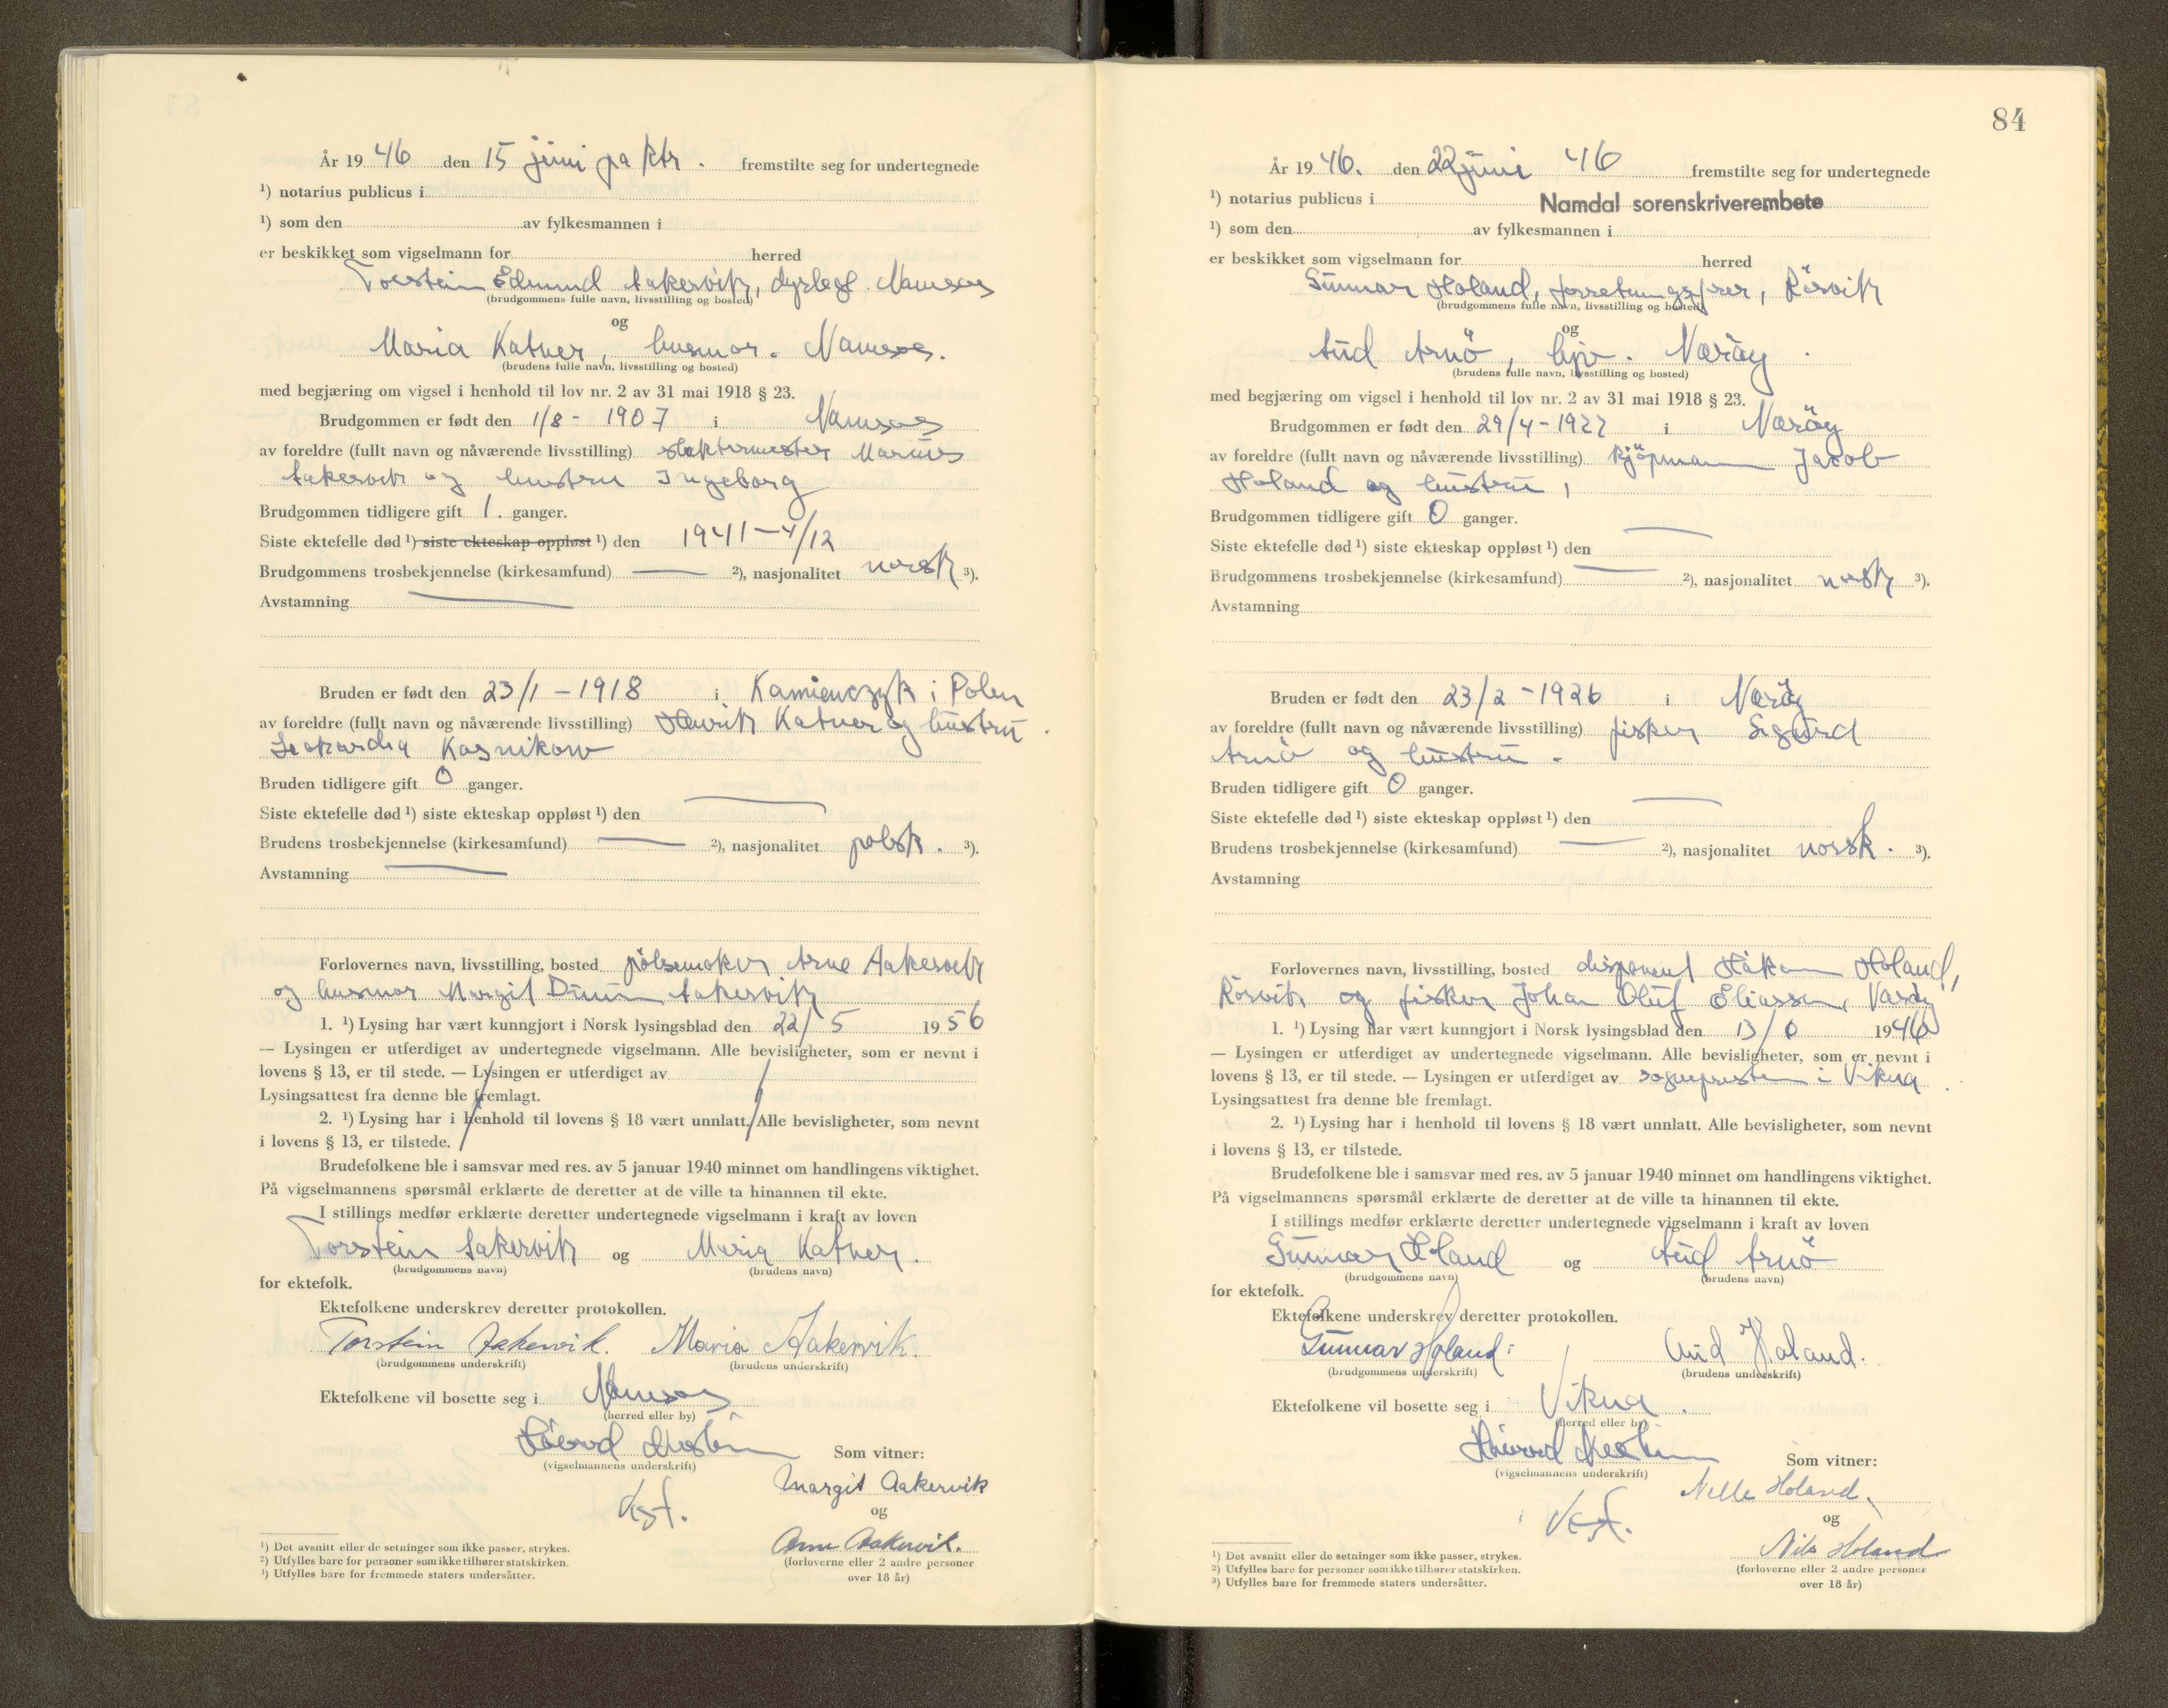 År 19 46 den 15 juni på ktr. fremstilte seg for undertegnede
¹) notarius publicus i
¹) som den av fylkesmannen i
er beskikket som vigselmann for herred
Torstein Edmund Aakervik, Namsos
(brudgommens fulle navn, livsstilling og bosted)
og
Maria Katner, husmor. Namsos.
(brudens fulle navn, livsstilling og bosted)
med begjæring om vigsel i henhold til lov nr. 2 av 31 mai 1918 § 23.
Brudgommen er født den 1/8 - 1907 i Namsos
av foreldre (fullt navn og nåværende livsstilling) slaktermester Marius
Aakervik og hustru Ingeborg
Brudgommen tidligere gift 1. ganger.
Siste ektefelle død ¹) siste ekteskap oppløst ¹) den 1941 - 4/12
Brudgommens trosbekjennelse (kirkesamfund) — ²), nasjonalitet norsk ³).
Avstamning —
Bruden er født den 23/1 - 1918 i Kamienczyk i Polen
av foreldre (fullt navn og nåværende livsstilling) Henrik Katner og hustru
Leokardia Kasnikow
Bruden tidligere gift 0 ganger.
Siste ektefelle død ¹) siste ekteskap oppløst ¹) den —
Brudens trosbekjennelse (kirkesamfund) — ²), nasjonalitet polsk. ³).
Avstamning —
Forlovernes navn, livsstilling, bosted pölsemaker Arne Aakervik
og husmor Margit Aakervik
1. ¹) Lysing har vært kunngjort i Norsk lysingsblad den 22/5 1956
— Lysingen er utferdiget av undertegnede vigselmann. Alle bevisligheter, som er nevnt i
lovens § 13, er til stede. — Lysingen er utferdiget av
Lysingsattest fra denne ble fremlagt.
2. ¹) Lysing har i henhold til lovens § 18 vært unnlatt. Alle bevisligheter, som nevnt
i lovens § 13, er tilstede.
Brudefolkene ble i samsvar med res. av 5 januar 1940 minnet om handlingens viktighet.
På vigselmannens spørsmål erklærte de deretter at de ville ta hinannen til ekte.
I stillings medfør erklærte deretter undertegnede vigselmann i kraft av loven
Torstein Aakervik og Maria Katner.
(brudgommens navn) (brudens navn)
for ektefolk.
Ektefolkene underskrev deretter protokollen.
Torstein Aakervik. Maria Aakervik.
(brudgommens underskrift) (brudens underskrift)
Ektefolkene vil bosette seg i Namsos
(herred eller by)
Som vitner:
(vigselmannens underskrift)
Margit Aakervik
og
Arne Aakervik.
(forloverne eller 2 andre personer
over 18 år)
¹) Det avsnitt eller de setninger som ikke passer, strykes.
²) Utfylles bare for personer som ikke tilhører statskirken.
³) Utfylles bare for fremmede staters undersåtter.
84
År 19 46. den 22 juni 46 fremstilte seg for undertegnede
¹) notarius publicus i Namdal sorenskriverembete
¹) som den av fylkesmannen i
er beskikket som vigselmann for herred
Gunnar Holand, Rörvik
(brudgommens fulle navn, livsstilling og bosted)
og
Aud Arnö, hjv. Næröy.
(brudens fulle navn, livsstilling og bosted)
med begjæring om vigsel i henhold til lov nr. 2 av 31 mai 1918 § 23.
Brudgommen er født den 29/4 - 1922 i Næröy
av foreldre (fullt navn og nåværende livsstilling) kjöpmann Jacob
Holand og hustru,
Brudgommen tidligere gift 0 ganger.
Siste ektefelle død ¹) siste ekteskap oppløst ¹) den —
Brudgommens trosbekjennelse (kirkesamfund) — ²), nasjonalitet norsk ³).
Avstamning
Bruden er født den 23/2 - 1926 i Næröy
av foreldre (fullt navn og nåværende livsstilling) fisker Sigurd
Arnö og hustru.
Bruden tidligere gift 0 ganger.
Siste ektefelle død ¹) siste ekteskap oppløst ¹) den —
Brudens trosbekjennelse (kirkesamfund) — ²), nasjonalitet norsk. ³).
Avstamning
Forlovernes navn, livsstilling, bosted disponent Håkon Holand,
Rörvik og fisker Johan Oluf Eliassen, Næröy
1. ¹) Lysing har vært kunngjort i Norsk lysingsblad den 13/6 1946
— Lysingen er utferdiget av undertegnede vigselmann. Alle bevisligheter, som er nevnt i
lovens § 13, er til stede. — Lysingen er utferdiget av sognepresten i Vikna
Lysingsattest fra denne ble fremlagt.
2. ¹) Lysing har i henhold til lovens § 18 vært unnlatt. Alle bevisligheter, som nevnt
i lovens § 13, er tilstede.
Brudefolkene ble i samsvar med res. av 5 januar 1940 minnet om handlingens viktighet.
På vigselmannens spørsmål erklærte de deretter at de ville ta hinannen til ekte.
I stillings medfør erklærte deretter undertegnede vigselmann i kraft av loven
Gunnar Holand og Aud Arnö
(brudgommens navn) (brudens navn)
for ektefolk.
Ektefolkene underskrev deretter protokollen.
Gunnar Holand. Aud Holand.
(brudgommens underskrift) (brudens underskrift)
Ektefolkene vil bosette seg i Vikna.
(herred eller by)
Som vitner:
(vigselmannens underskrift)
Nelle Holand.
og
Nils Holand
(forloverne eller 2 andre personer
over 18 år)
¹) Det avsnitt eller de setninger som ikke passer, strykes.
²) Utfylles bare for personer som ikke tilhører statskirken.
³) Utfylles bare for fremmede staters undersåtter.